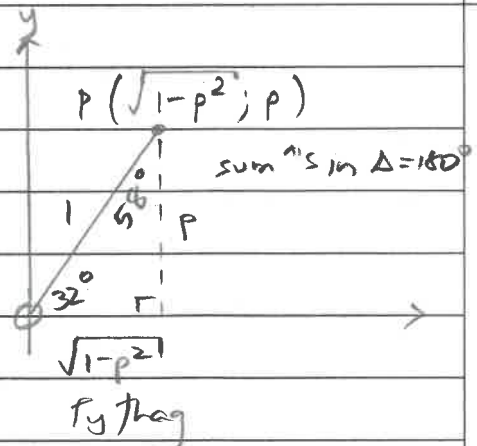 y
P(√1-p² ; p)
sum ^s in Δ=180°
1
58°
p
32°
√1-p²
Pythag